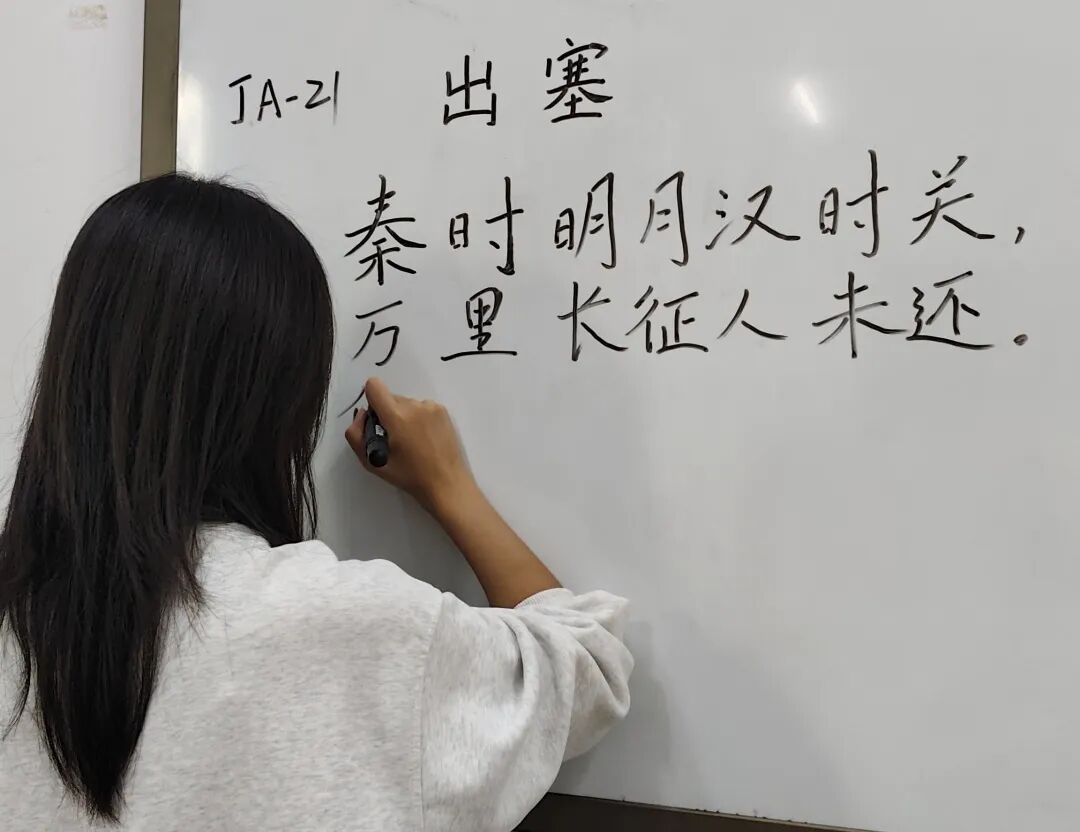 JA-21 出塞
秦时明月汉时关,
万里长征人未还.